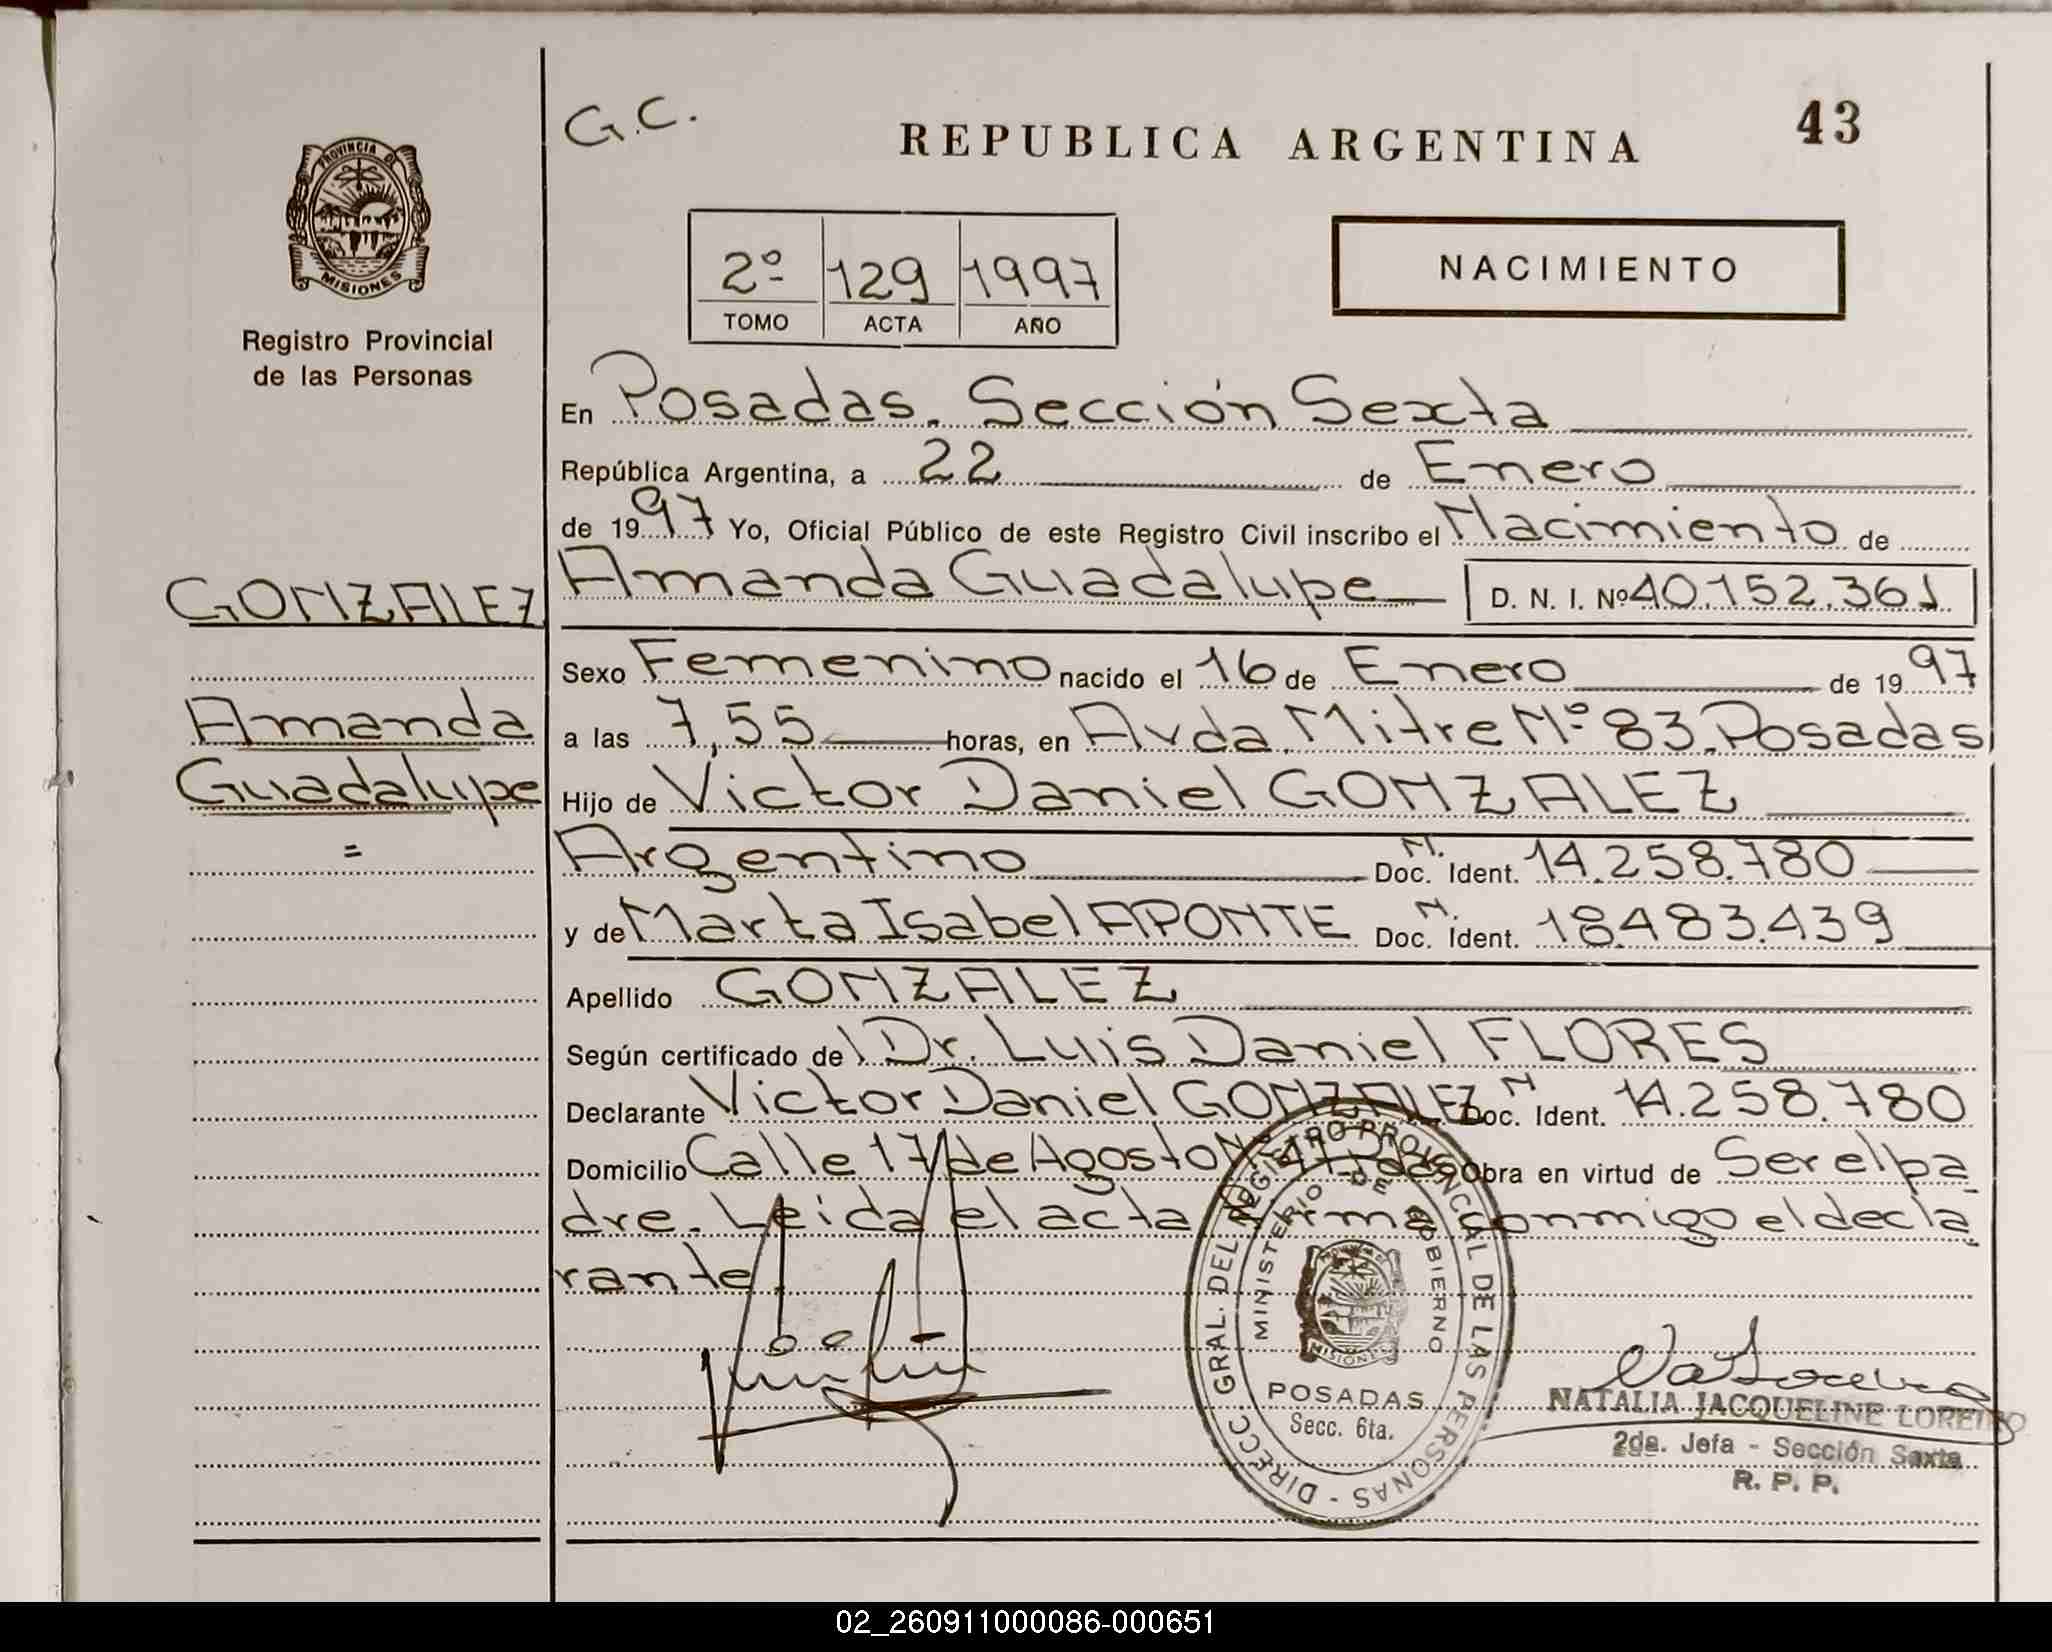 G.C.
REPUBLICA ARGENTINA
43
PROVINCIA D
MISIONES
Registro Provincial
de las Personas
2º 129 1997
TOMO ACTA AÑO
NACIMIENTO
En Posadas, Sección Sexta
República Argentina, a 22 de Enero
de 1997 Yo, Oficial Público de este Registro Civil inscribo el Nacimiento de
GONZALEZ
Amanda Guadalupe D. N. I. Nº 40.152.361
Sexo Femenino nacido el 16 de Enero de 1997
Amanda
a las 7,55 horas, en Avda. Mitre Nº 83. Posadas
Guadalupe
Hijo de Victor Daniel GONZALEZ
=
Argentino Doc. N. Ident. 14.258.780
y de Marta Isabel APONTE Doc. N. Ident. 18.483.439
Apellido GONZALEZ
Según certificado de Dr. Luis Daniel FLORES
Declarante Victor Daniel GONZALEZ N Doc. Ident. 14.258.780
Domicilio Calle 17 de Agosto Obra en virtud de Ser el pa
dre. Leida el acta firma conmigo el decla
rante.
DIRECC. GRAL. DEL REGISTRO PROVINCIAL DE LAS PERSONAS -
MINISTERIO DE GOBIERNO
MISIONES
POSADAS
Secc. 6ta.
NATALIA JACQUELINE LOREIRO
2da. Jefa - Sección Sexta
R. P. P.
02_260911000086-000651